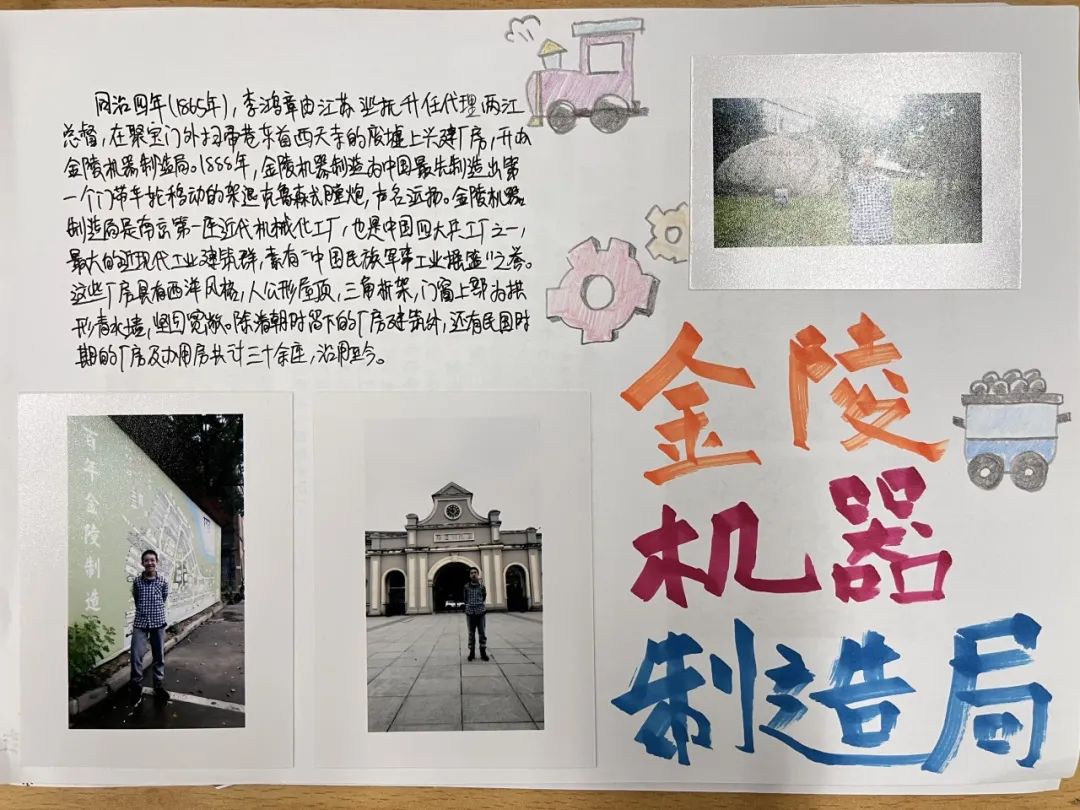 同治四年(1865年),李鸿章由江苏巡抚升任代理两江
总督,在聚宝门外扫帚巷东首西天寺的废墟上兴建厂房,开办
金陵机器制造局。1888年,金陵机器制造为中国最先制造出第
一个门带车轮移动的架退克鲁森式膛炮,声名远扬。金陵机器
制造局是南京第一座近代机械化工厂,也是中国四大兵工厂之一,
最大的近现代工业建筑群,素有"中国民族军事工业摇篮"之誉。
这些厂房具有西洋风格,人公形屋顶,三角桁架,门窗上部为拱
形青水墙,坚固宽敞。除清朝时留下的厂房建筑外,还有民国时
期的厂房及办用房共计三十余座,沿用至今。
百年金陵制造
金陵
机器
制造局